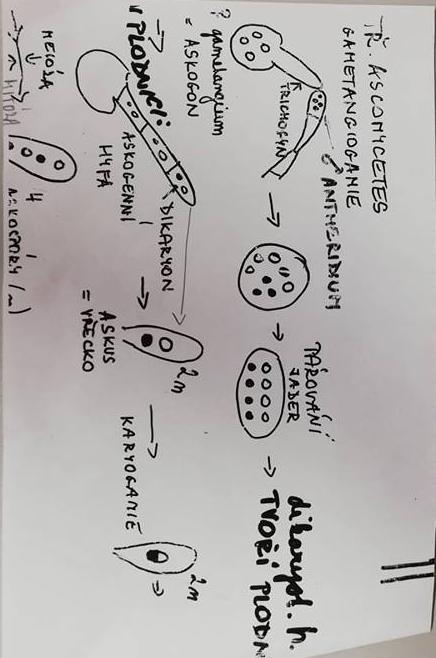 TŘ. ASCOMYCETES
GAMETANGIOGAMIE
♂ ANTHERIDIUM
TRICHOGYN
♀ gametangium
= ASKOGON
PÁROVÁNÍ
JADER
dikaryot. h.
TVOŘÍ PLODN
PLODNICI:
ASKOGENNÍ
HYFA
DIKARYON
2n
ASKUS
= VŘECKO
KARYOGAMIE
2n
MEIÓZA
4
ASKOSPORY (n)